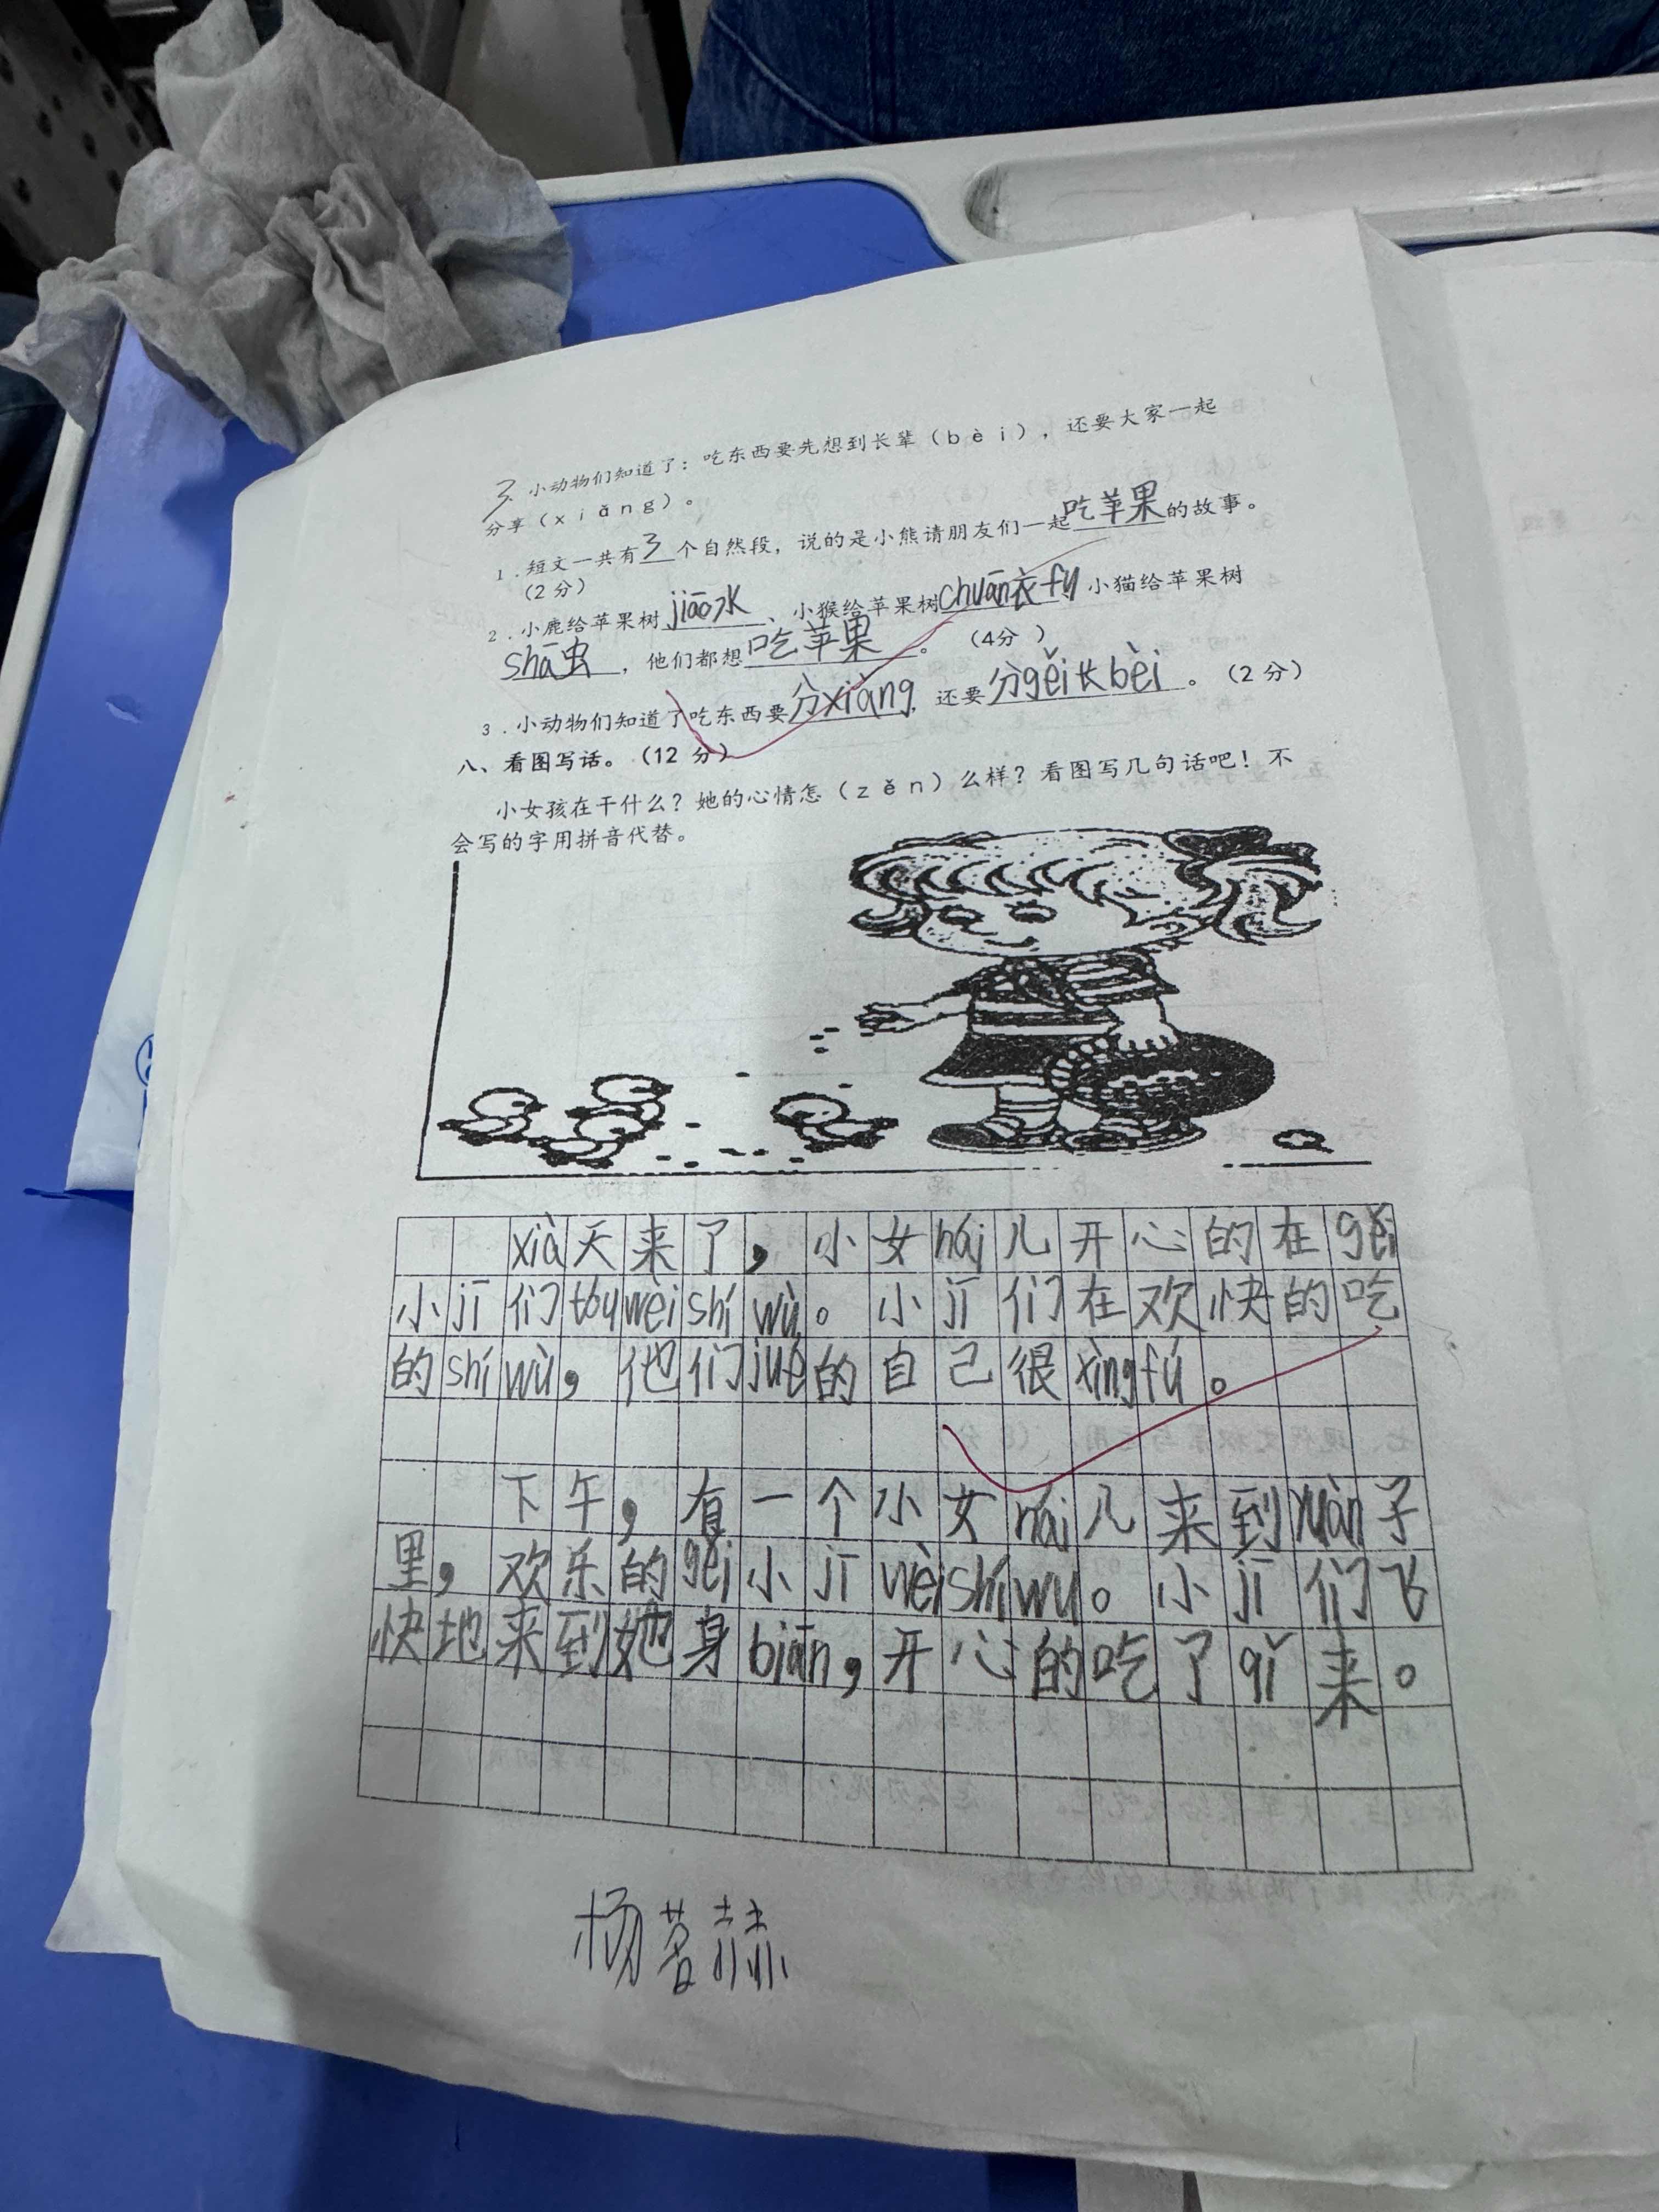 3 小动物们知道了：吃东西要先想到长辈（bèi），还要大家一起
分享（xiǎng）。
1.短文一共有3个自然段，说的是小熊请朋友们一起吃苹果的故事。
（2分）
2.小鹿给苹果树jiāo水、小猴给苹果树chuān衣fú小猫给苹果树
shā虫，他们都想吃苹果。（4分）
3.小动物们知道了吃东西要分xiàng，还要分gěi长bèi。（2分）
八、看图写话。（12分）
小女孩在干什么？她的心情怎（zěn）么样？看图写几句话吧！不
会写的字用拼音代替。
xià天来了，小女hái儿开心的在gěi
小jī们tóuwèishíwù。小jī们在欢快的吃
的shíwù，他们jué的自己很xìngfú。
下午，有一个小女hái儿来到yuàn子
里，欢乐的gěi小jī wèishíwu。小jī们飞
快地来到她身biān，开心的吃了qǐ来。
杨茗赫